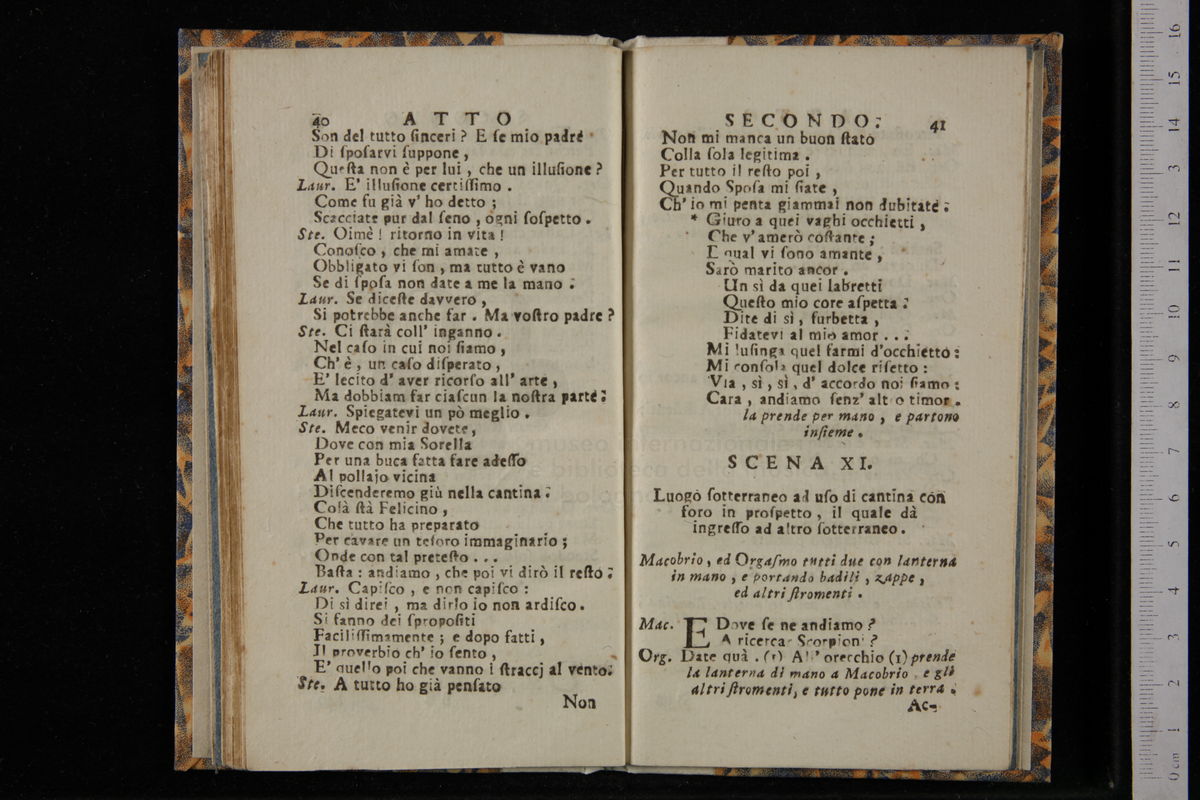 40 ATTO
Son del tutto ſinceri? E ſe mio padre
Di ſpoſarvi ſuppone,
Queſta non è per lui, che un illuſione?
Laur. E' illuſione certiſſimo.
Come fu già v' ho detto;
Scacciate pur dal ſeno, ogni ſoſpetto.
Ste. Oimè! ritorno in vita!
Conoſco, che mi amate,
Obbligato vi ſon, ma tutto è vano
Se di ſpoſa non date a me la mano.
Laur. Se diceſte davvero,
Si potrebbe anche far. Ma voſtro padre?
Ste. Ci ſtarà coll' inganno.
Nel caſo in cui noi ſiamo,
Ch' è, un caſo diſperato,
E' lecito d' aver ricorſo all' arte,
Ma dobbiam far ciaſcun la noſtra parte.
Laur. Spiegatevi un pò meglio.
Ste. Meco venir dovete,
Dove con mia Sorella
Per una buca fatta fare adeſſo
Al pollajo vicina
Diſcenderemo giù nella cantina.
Colà ſtà Felicino,
Che tutto ha preparato
Per cavare un teſoro immaginario;
Onde con tal preteſto...
Baſta: andiamo, che poi vi dirò il reſto.
Laur. Capiſco, e non capiſco:
Di sì direi, ma dirlo io non ardiſco.
Si fanno dei ſpropoſiti
Faciliſſimamente; e dopo fatti,
Il proverbio ch' io ſento,
E' quello poi che vanno i ſtraccj al vento.
Ste. A tutto ho già penſato
Non
SECONDO. 41
Non mi manca un buon ſtato
Colla ſola legitima.
Per tutto il reſto poi,
Quando Spoſa mi ſiate,
Ch' io mi penta giammai non dubitate.
* Giuro a quei vaghi occhietti,
Che v' amerò coſtante;
E qual vi ſono amante,
Sarò marito ancor.
Un sì da quei labretti
Queſto mio core aſpetta.
Dite di sì, furbetta,
Fidatevi al mio amor...
Mi luſinga quel farmi d'occhietto:
Mi conſola quel dolce riſetto:
Via, sì, sì, d' accordo noi ſiamo:
Cara, andiamo ſenz' altro timor.
la prende per mano, e partono
inſieme.
SCENA XI.
Luogo ſotterraneo ad uſo di cantina con
foro in proſpetto, il quale dà
ingreſſo ad altro ſotterraneo.
Macobrio, ed Orgaſmo tutti due con lanterna
in mano, e portando badili, zappe,
ed altri ſtromenti.
Mac. E Dove ſe ne andiamo?
A ricercar Scorpioni?
Org. Date quà. (1) All' orecchio (1) prende
la lanterna di mano a Macobrio, e gli
altri ſtromenti, e tutto pone in terra.
Ac-
museo internazionale
e biblioteca della
bologna
0 cm 1 2 3 4 5 6 7 8 9 10 11 12 13 14 15 16